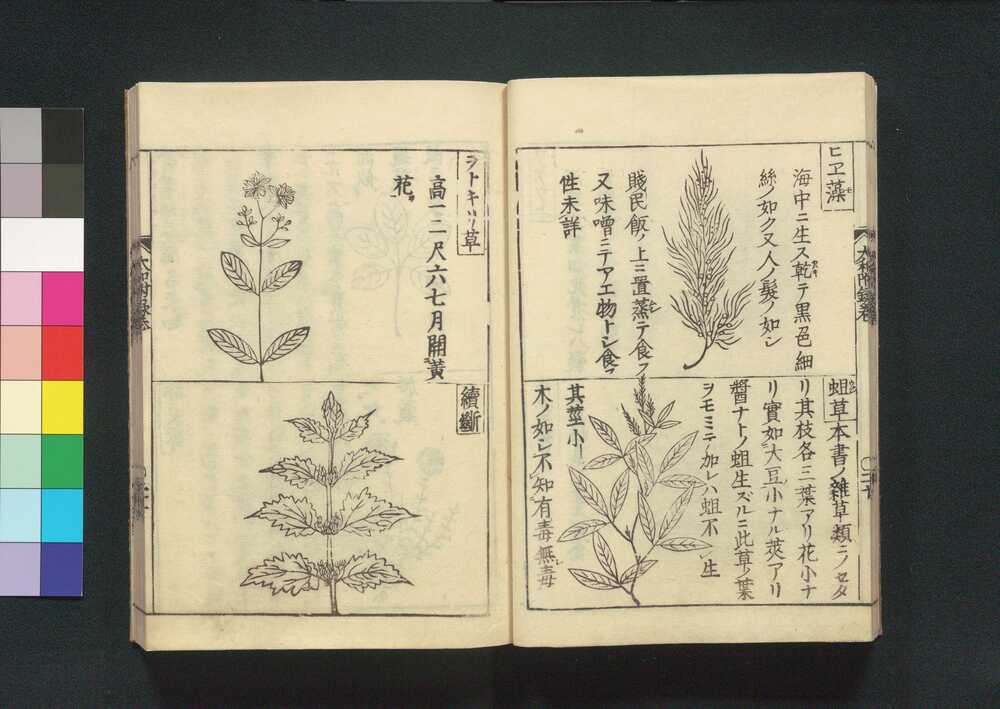 ヒヱ藻
海中ニ生ス乾テ黒色細
絲ノ如ク又人ノ髪ノ如シ
賤民飯ノ上ニ置蒸テ食フ
又味噌ニテアエ物トシ食フ
性未詳
蛆草本書ノ雜草類ニノセタ
リ其枝各三葉アリ花小ナ
リ實如大豆小ナル莢アリ
醤ナトノ蛆生ズルニ此草ノ葉
ヲモミテ加レハ蛆不生
其莖小
木ノ如シ不知有毒無毒
ヲトキリ草
高一二尺六七月開黄
花
續斷